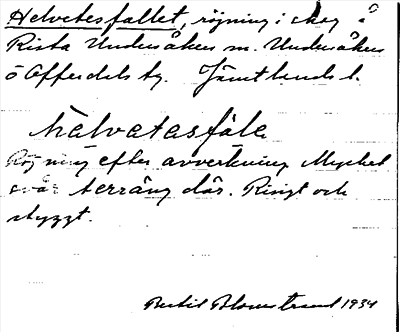 Helvetesfallet, röjning i skog å
Rista Undersåkers sn. Undersåkers
o Offerdals tg. Jämtlands l.
hälvätasfále
Röjning efter avverkning. Mycket
svår terräng där. Ringt och
styggt.
Bertil Blomstrand 1934